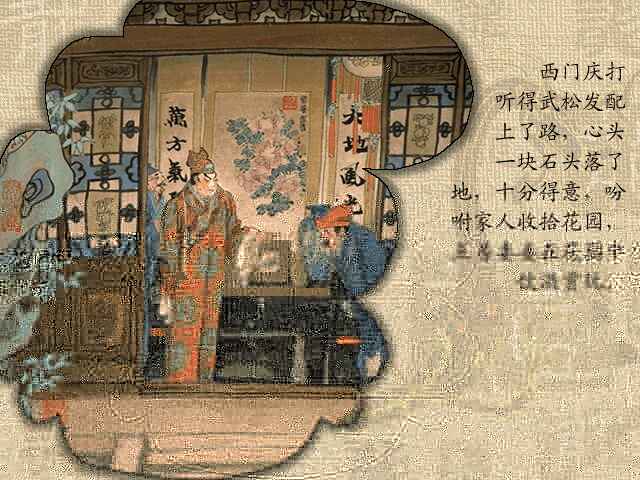 西门庆打
听得武松发配
上了路，心头
一块石头落了
地，十分得意，吩
咐家人收拾花园，
萬方氣
大地風光